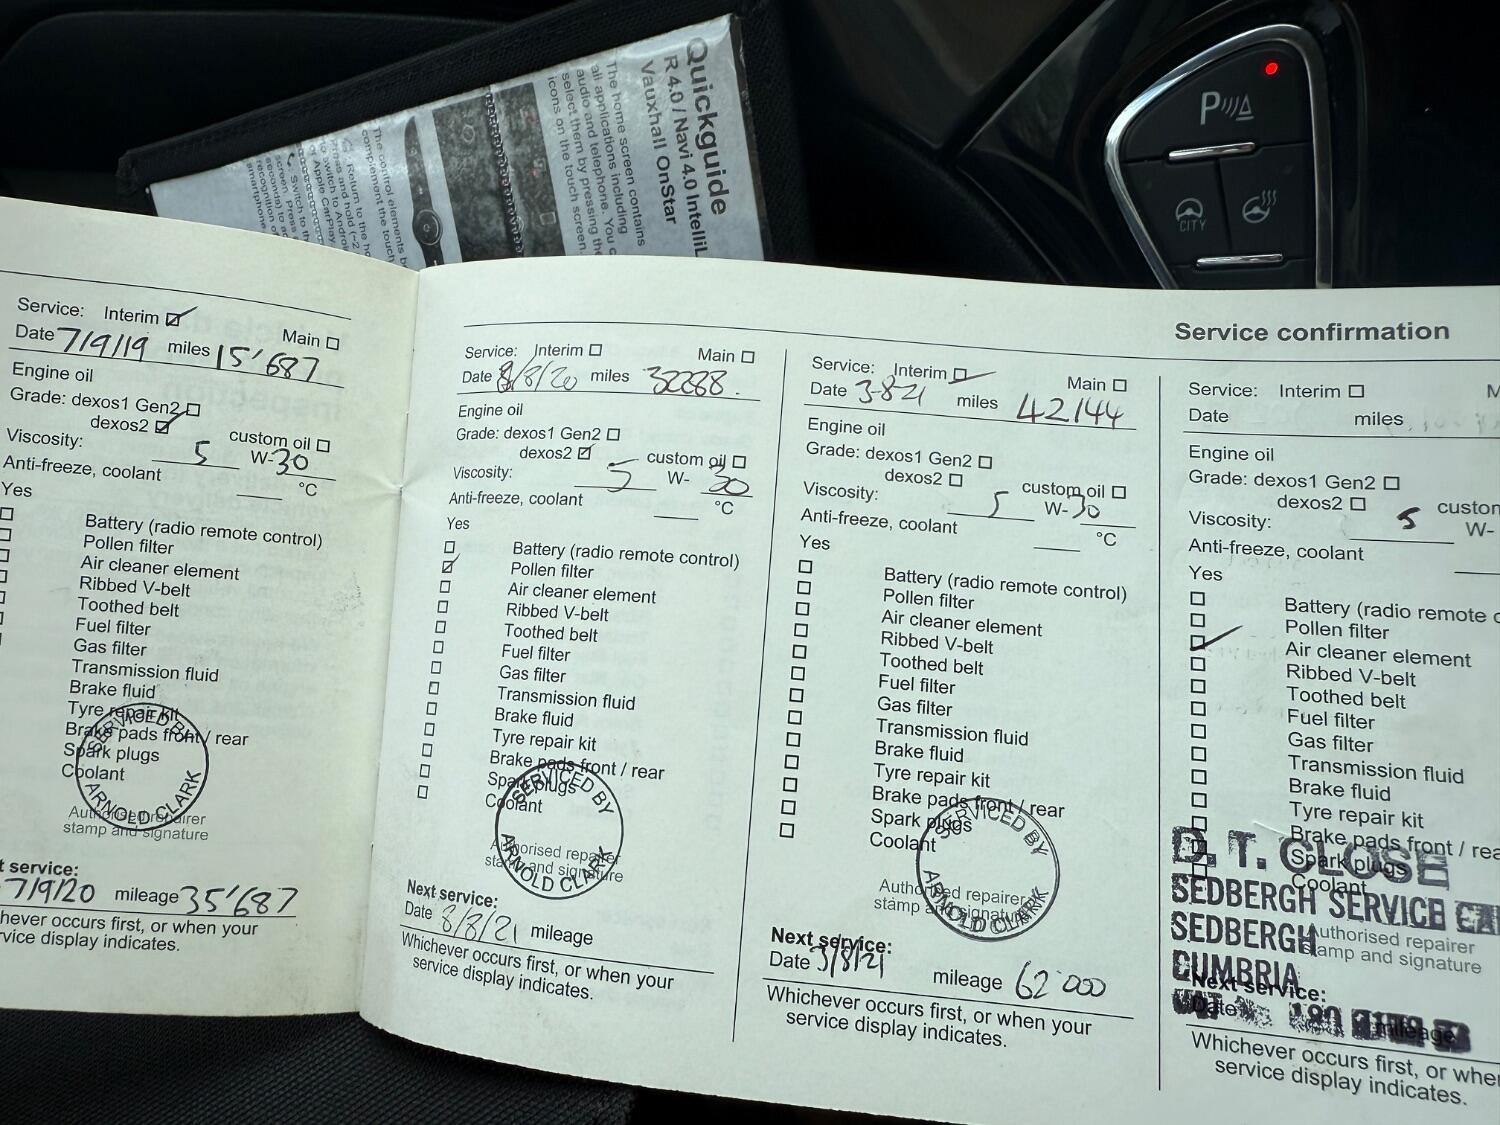 Quickguide
R 4.0 / Navi 4.0 IntelliL
Vauxhall OnStar
The home screen contains
all applications including
audio and telephone. You c
select them by pressing the
icons on the touch screen.
The control elements b
complement the touch
Return to the ho
Press and hold (~2
to switch to Android
or Apple CarPlay.
Switch to th
screen. Press
seconds) to a
recognition o
smartphone
P
CITY
Service: Interim ☑ Main ☐
Date 7/9/19 miles 15'687
Engine oil
Grade: dexos1 Gen2 ☐
dexos2 ☑ custom oil ☐
Viscosity: 5 W-30
Anti-freeze, coolant °C
Yes
Battery (radio remote control)
Pollen filter
Air cleaner element
Ribbed V-belt
Toothed belt
Fuel filter
Gas filter
Transmission fluid
Brake fluid
Tyre repair kit
Brake pads front / rear
Spark plugs
Coolant
SERVICED BY
ARNOLD CLARK
Authorised repairer
stamp and signature
t service:
7/9/20 mileage 35'687
hever occurs first, or when your
rvice display indicates.
Service confirmation
Service: Interim ☐ Main ☐
Date 8/8/20 miles 32288.
Engine oil
Grade: dexos1 Gen2 ☐
dexos2 ☑ custom oil ☐
Viscosity: 5 W- 30
Anti-freeze, coolant °C
Yes
☐ Battery (radio remote control)
☑ Pollen filter
☐ Air cleaner element
☐ Ribbed V-belt
☐ Toothed belt
☐ Fuel filter
☐ Gas filter
☐ Transmission fluid
☐ Brake fluid
☐ Tyre repair kit
☐ Brake pads front / rear
☐ Spark plugs
☐ Coolant
SERVICED BY
ARNOLD CLARK
Authorised repairer
stamp and signature
Next service:
Date 8/8/21 mileage
Whichever occurs first, or when your
service display indicates.
Service: Interim ☑ Main ☐
Date 3-8-21 miles 42144
Engine oil
Grade: dexos1 Gen2 ☐
dexos2 ☐ custom oil ☐
Viscosity: 5 W-30
Anti-freeze, coolant °C
Yes
☐ Battery (radio remote control)
☐ Pollen filter
☐ Air cleaner element
☐ Ribbed V-belt
☐ Toothed belt
☐ Fuel filter
☐ Gas filter
☐ Transmission fluid
☐ Brake fluid
☐ Tyre repair kit
☐ Brake pads front / rear
☐ Spark plugs
☐ Coolant
SERVICED BY
ARNOLD CLARK
Authorised repairer
stamp and signature
Next service:
Date 3/8/21 mileage 62'000
Whichever occurs first, or when your
service display indicates.
Service: Interim ☐ M
Date miles
Engine oil
Grade: dexos1 Gen2 ☐
dexos2 ☐ custom
Viscosity: 5 W-
Anti-freeze, coolant
Yes
☐ Battery (radio remote c
☐ Pollen filter
☑ Air cleaner element
☐ Ribbed V-belt
☐ Toothed belt
☐ Fuel filter
☐ Gas filter
☐ Transmission fluid
☐ Brake fluid
☐ Tyre repair kit
☐ Brake pads front / rea
☐ Spark plugs
☐ Coolant
D. T. CLOSE
SEDBERGH SERVICE
SEDBERGH
CUMBRIA
Authorised repairer
stamp and signature
Next service:
Date mileage
Whichever occurs first, or whe
service display indicates.